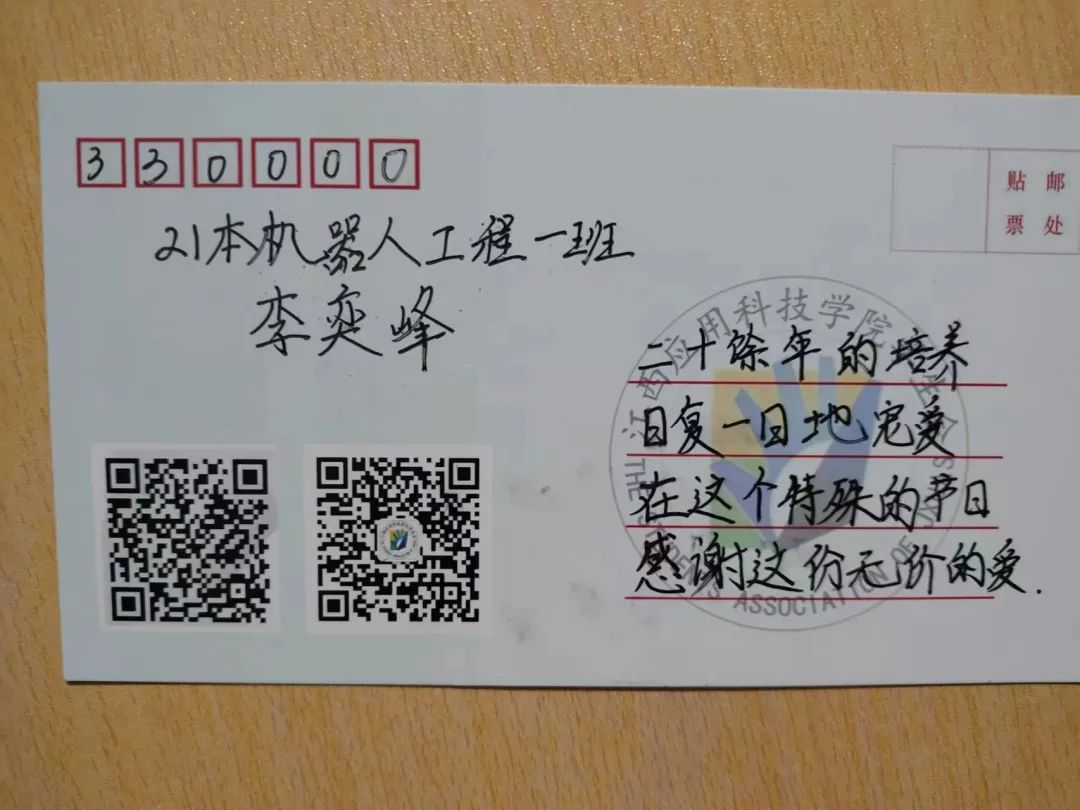 330000
贴 邮
票 处
21本机器人工程一班
李奕峰
江西应用科技学院
二十馀年的培养
日复一日地宠爱
在这个特殊的节日
感谢这份无价的爱.
ASSOCIATION OF